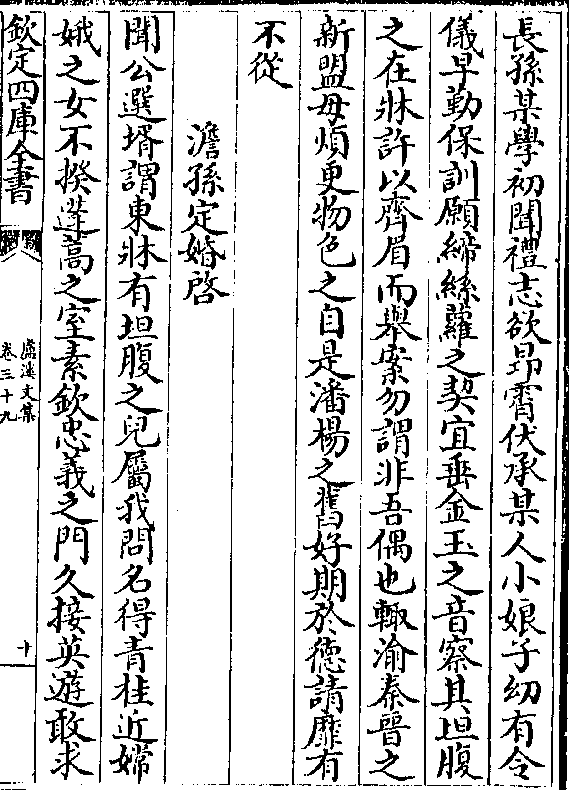 長孫某學初聞禮志欲昂霄伏承某人小娘子幼有令
儀早勤保訓願締絲蘿之契宜垂金玉之音察其坦腹
之在牀許以齊眉而舉案勿謂非吾偶也輙渝秦晉之
新盟毋煩更物色之自是潘楊之舊好期於徳請靡有
不從
澹孫定婚啓
聞公選壻謂東牀有坦腹之兒屬我問名得青桂近嫦
娥之女不揆蓬高之室素欽忠義之門久接英遊敢求
欽定四庫全書
盧溪文集
卷三十九
十